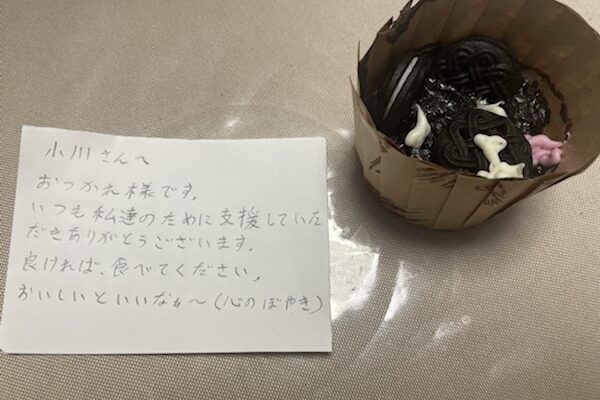 小川さんへ
おつかれ様です。
いつも私達のために支援していた
だきありがとうございます。
良ければ、食べてください。
おいしいといいなぁ〜(心のぼやき)